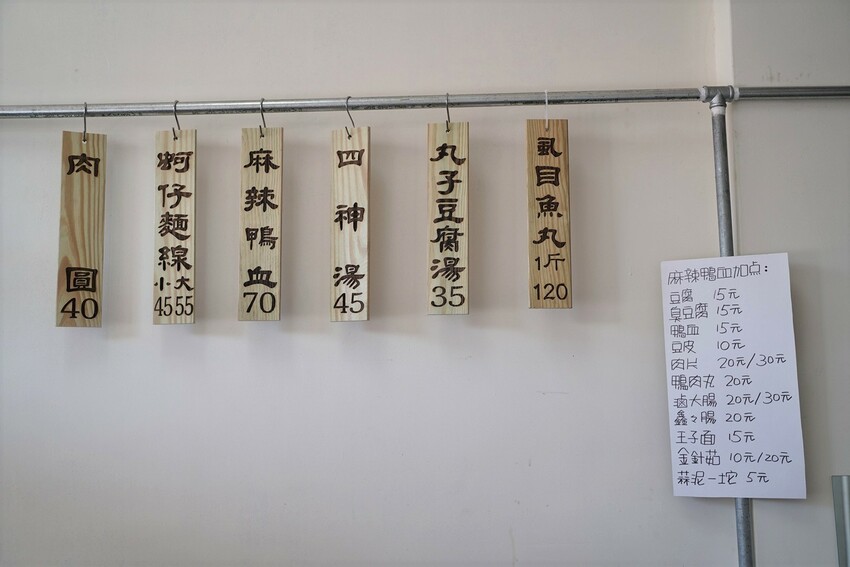 肉圓
40
蚵仔麵線
小 大
45 55
麻辣鴨血
70
四神湯
45
丸子豆腐湯
35
虱目魚丸
1斤
120
麻辣鴨血加点：
豆腐 15元
臭豆腐 15元
鴨血 15元
豆皮 10元
肉片 20元/30元
鴨肉丸 20元
卤大腸 20元/30元
鑫々腸 20元
王子面 15元
金針茹 10元/20元
蒜泥一坨 5元